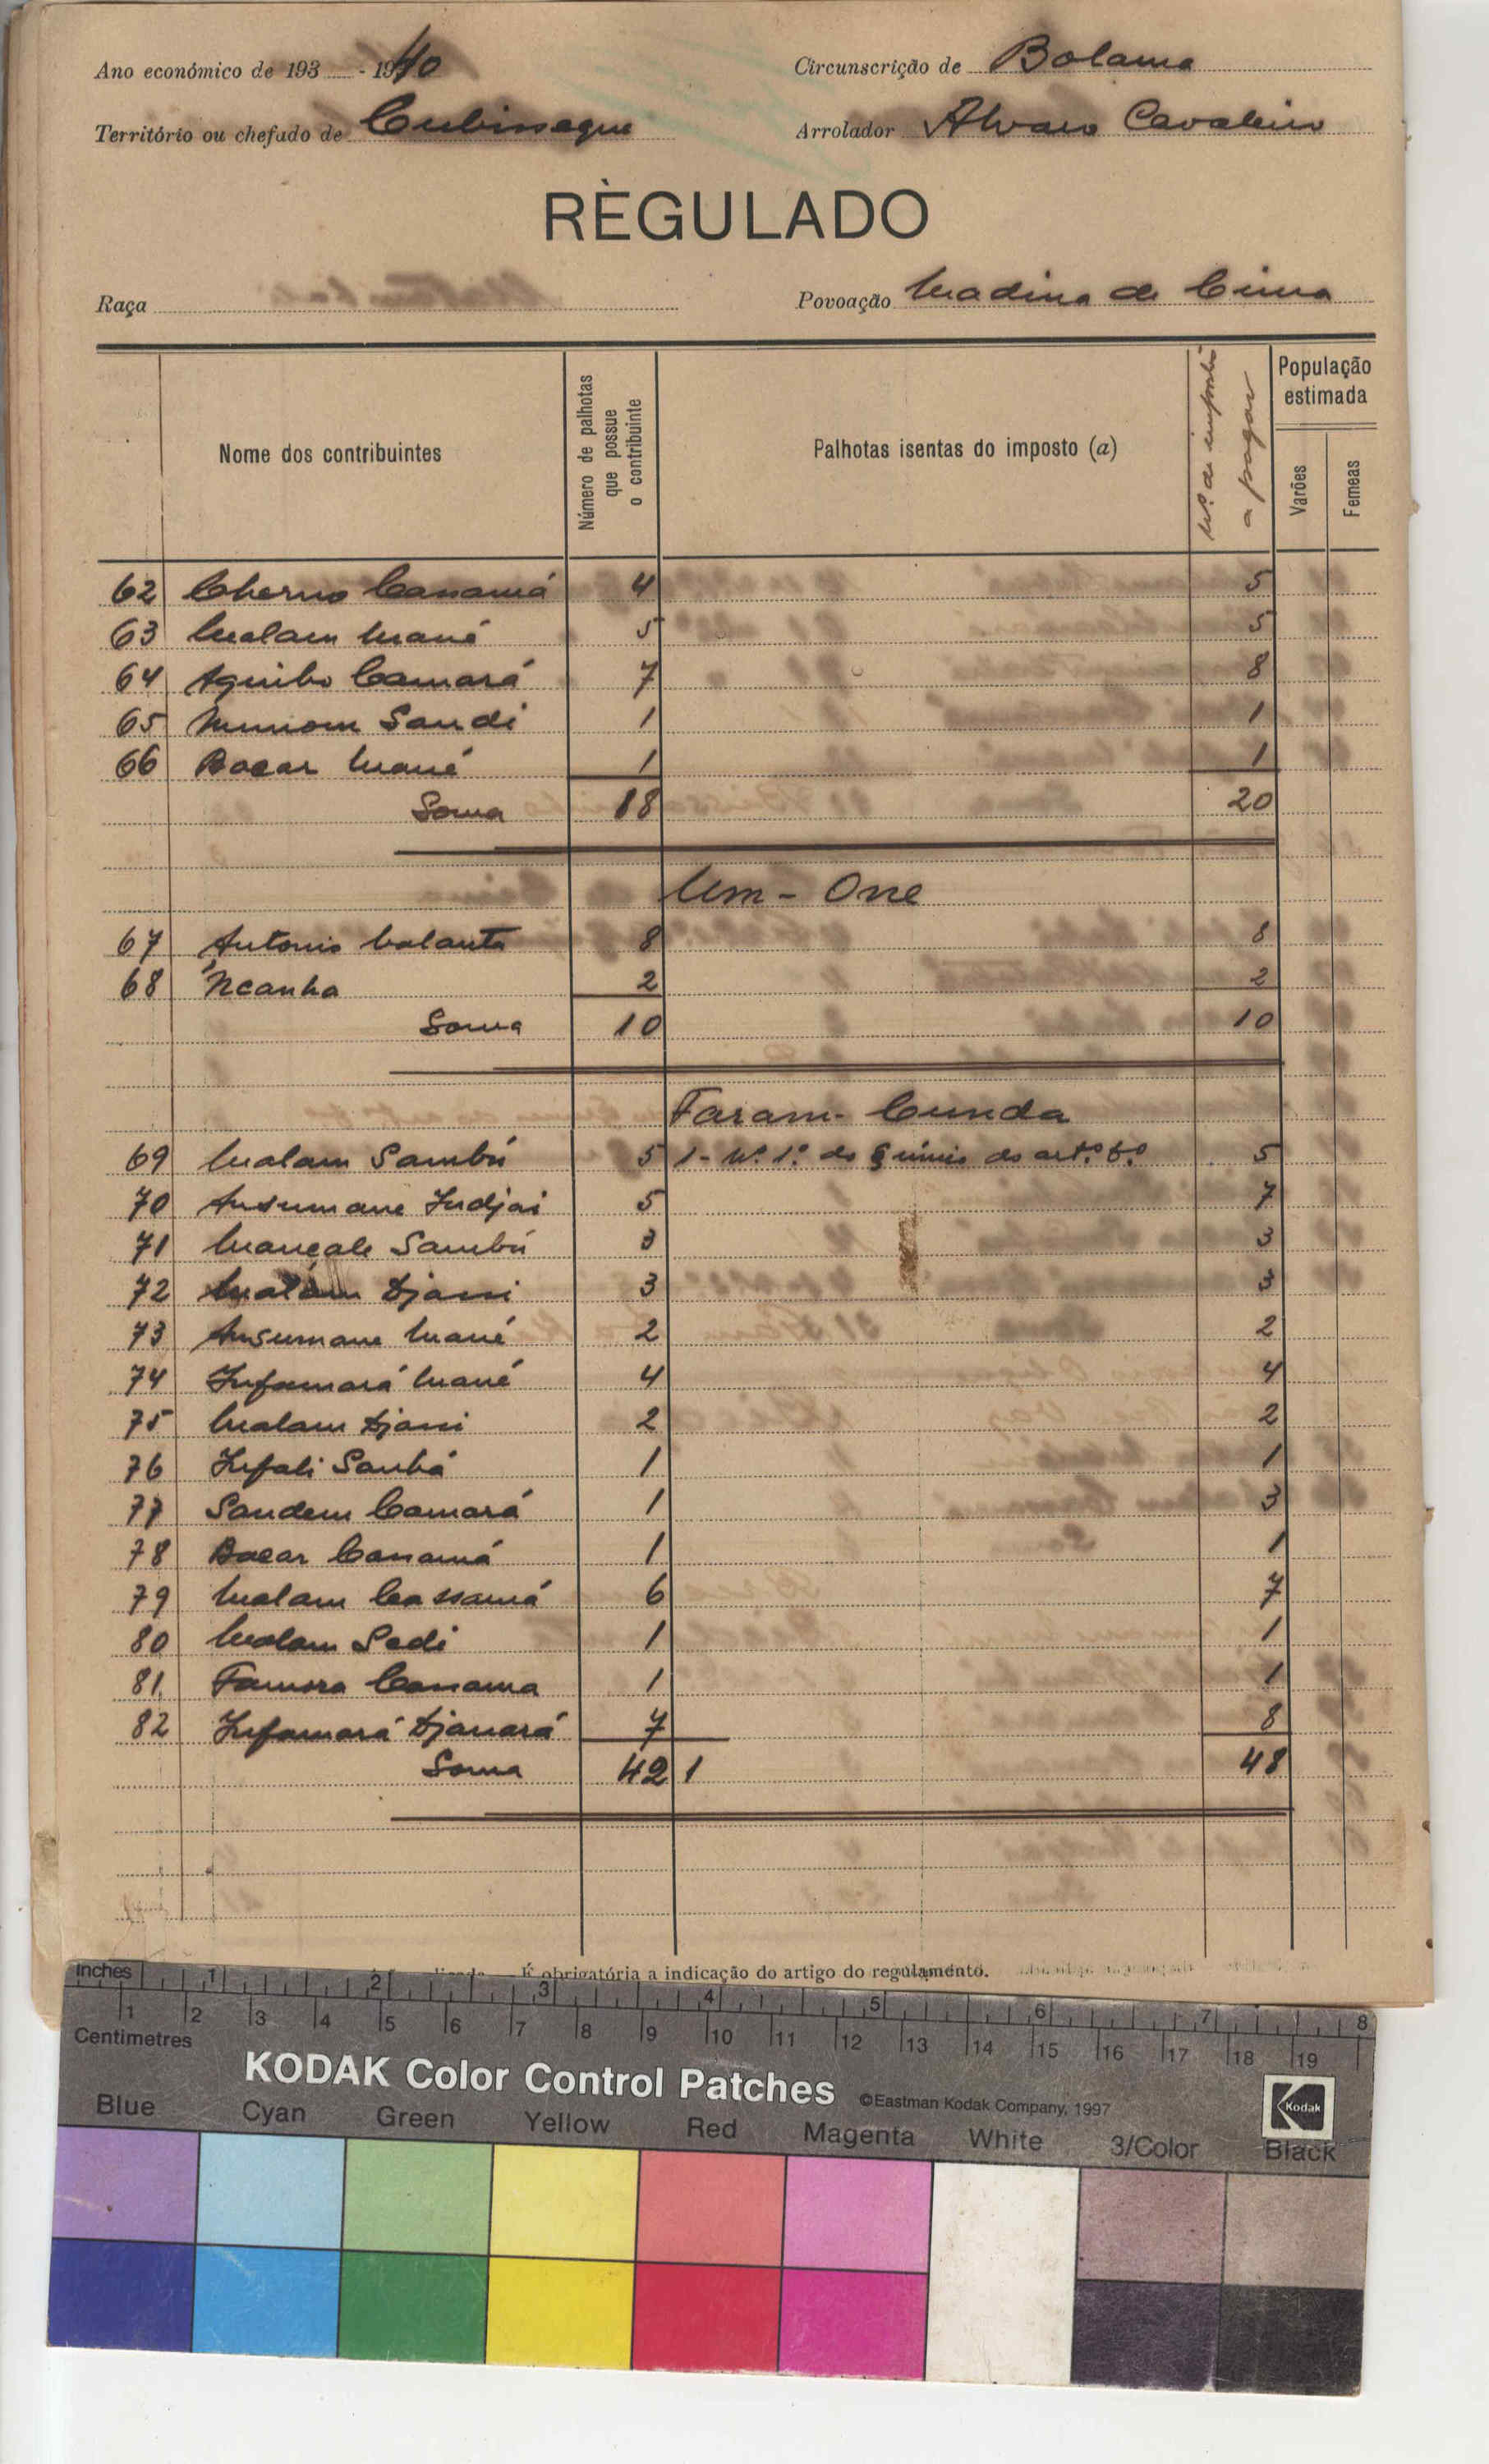 Ano económico de 193 - 1940 Circunscrição de Bolama
Território ou chefado de Cubisseque Arrolador Alvaro Cavaleiro
RÈGULADO
Raça Povoação Madina de Cima
Nome dos contribuintes
Número de palhotas que possue o contribuinte
Palhotas isentas do imposto (a)
Nº. de impostos a pagar
População estimada
Varões
Femeas
62 Cherno Cassamá 4 5
63 Malam Mané 5 5
64 Aguibo Camará 7 8
65 Sandi 1 1
66 Bacar Mané 1 1
Soma 18 20
Um - One
67 Antonio balanta 8 8
68 Ncanha 2 2
Soma 10 10
Faram - Cunda
69 Malam Sambú 5 1 - Nº. 1º. do § único do artº. 6º 5
70 Ansumane Indjai 5 7
71 Mancale Sambú 3 3
72 Malam Djassi 3 3
73 Ansumane Mané 2 2
74 Infamará Mané 4 4
75 Malam Djassi 2 2
76 Infali Sanhá 1 1
77 Sandem Camará 1 3
78 Bacar Cassamá 1 1
79 Malam Cassamá 6 7
80 Malam Sedi 1 1
81 Famora Cassama 1 1
82 Infamará Djauará 7 8
Soma 42 1 48
É obrigatória a indicação do artigo do regulamento.
inches 1 2 3 4 5 6 7 8
1 2 3 4 5 6 7 8 9 10 11 12 13 14 15 16 17 18 19
Centimetres
KODAK Color Control Patches ©Eastman Kodak Company, 1997 Kodak
Blue Cyan Green Yellow Red Magenta White 3/Color Black